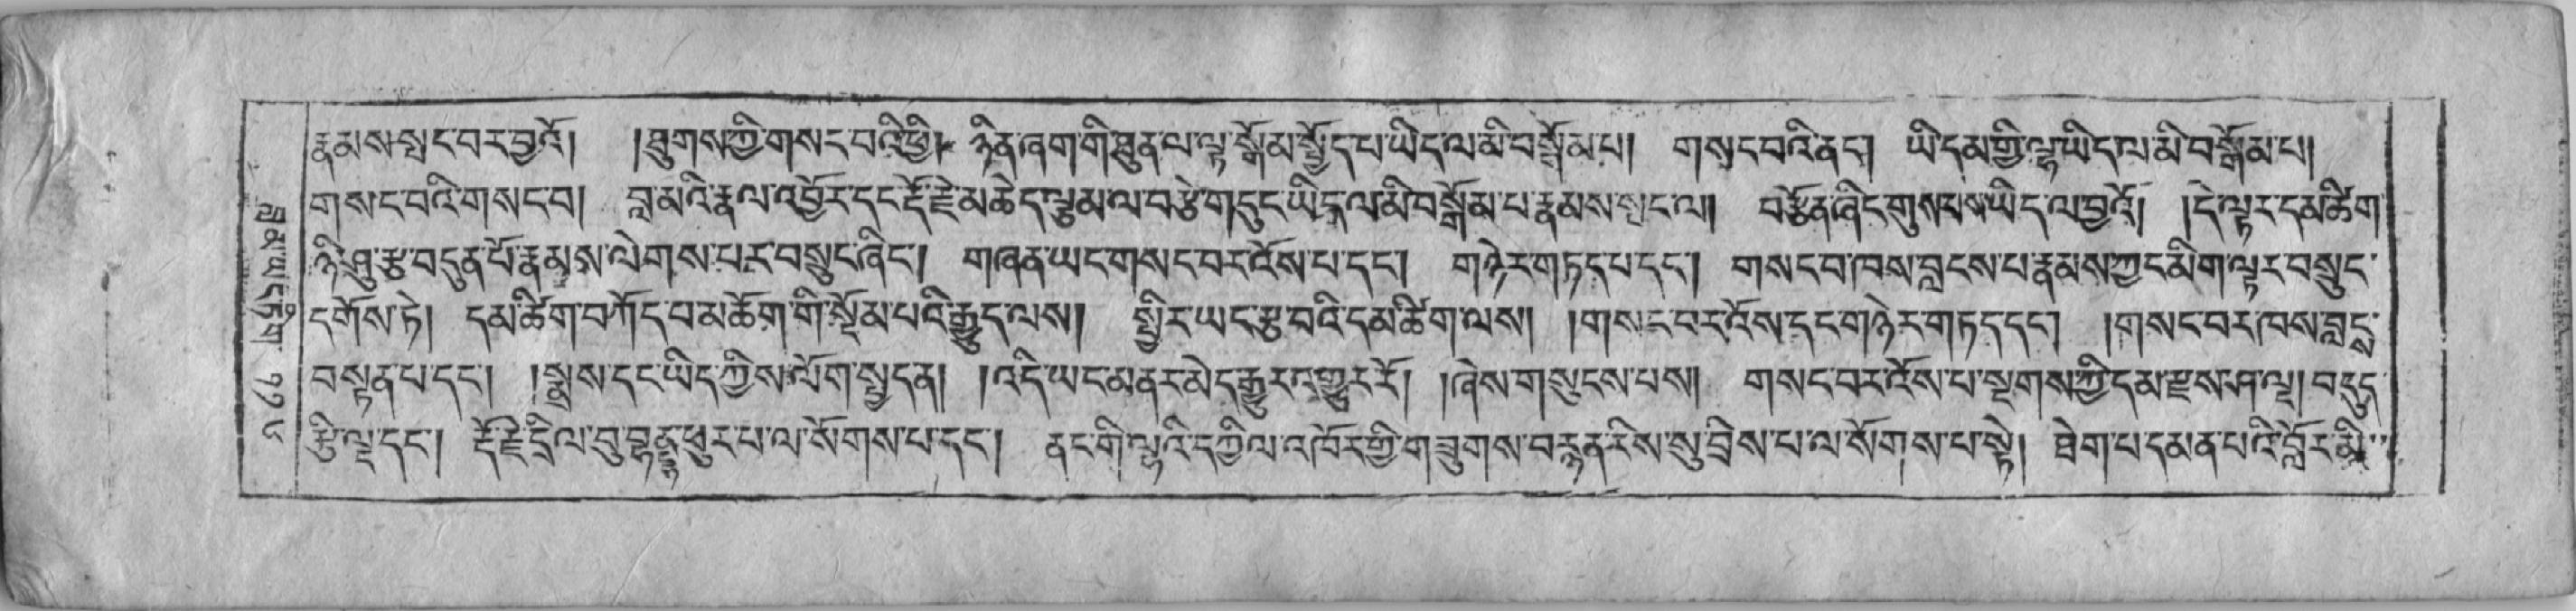 རྣམས་སྤང་བར་བྱའོ། །ཐུགས་ཀྱི་གསང་བའི་ཕྱི། ཉིན་ཞག་གི་ཐུན་ལ་ལྟ་སྒོམ་སྤྱོད་པ་ཡིད་ལ་མི་བསྒོམ་པ། གསང་བའི་ནང། ཡི་དམ་གྱི་ལྷ་ཡིད་ལ་མི་བསྒོམ་པ།
གསང་བའི་གསང་བ། བླ་མའི་རྣལ་འབྱོར་དང་རྡོ་རྗེ་མཆེད་ལྕམ་ལ་བརྩེ་གདུང་ཡིད་ལ་མི་བསྒོམ་པ་རྣམས་སྤང་ལ། བརྩོན་ཞིང་གུས་པས་ཡིད་ལ་བྱའོ། །དེ་ལྟར་དམ་ཚིག་
ཉི་ཤུ་རྩ་བདུན་པོ་རྣམས་ལེགས་པར་བསྲུང་ཞིང་། གཞན་ཡང་གསང་བར་འོས་པ་དང། གཉེར་གཏད་པ་དང་། གསང་བ་ཁས་བླངས་པ་རྣམས་ཀྱང་མིག་ལྟར་བསྲུང་
དགོས་ཏེ། དམ་ཚིག་བཀོད་པ་མཆོག་གི་སྡོམ་པའི་རྒྱུད་ལས། སྤྱིར་ཡང་རྩ་བའི་དམ་ཚིག་ལས། །གསང་བར་འོས་དང་གཉེར་གཏད་དང། །གསང་བར་ཁས་བླང་
བསྟན་པ་དང་། །སྨྲས་དང་ཡིད་ཀྱིས་ལོག་སྤྱད་ན། །འདི་ཡང་མནར་མེད་རྒྱུར་འགྱུར་རོ། །ཞེས་གསུངས་པས། གསང་བར་འོས་པ་སྔགས་ཀྱི་དམ་རྫས་ཤ་ལྔ། བདུད་
རྩི་ལྔ་དང་། རྡོ་རྗེ་དྲིལ་བུ་བྷནྡྷ་ཕུར་པ་ལ་སོགས་པ་དང་། ནང་གི་ལྷའི་དཀྱིལ་འཁོར་གྱི་གཟུགས་བརྙན་རིས་སུ་བྲིས་པ་ལ་སོགས་པ་སྟེ། ཐེག་པ་དམན་པའི་བློར་མི་